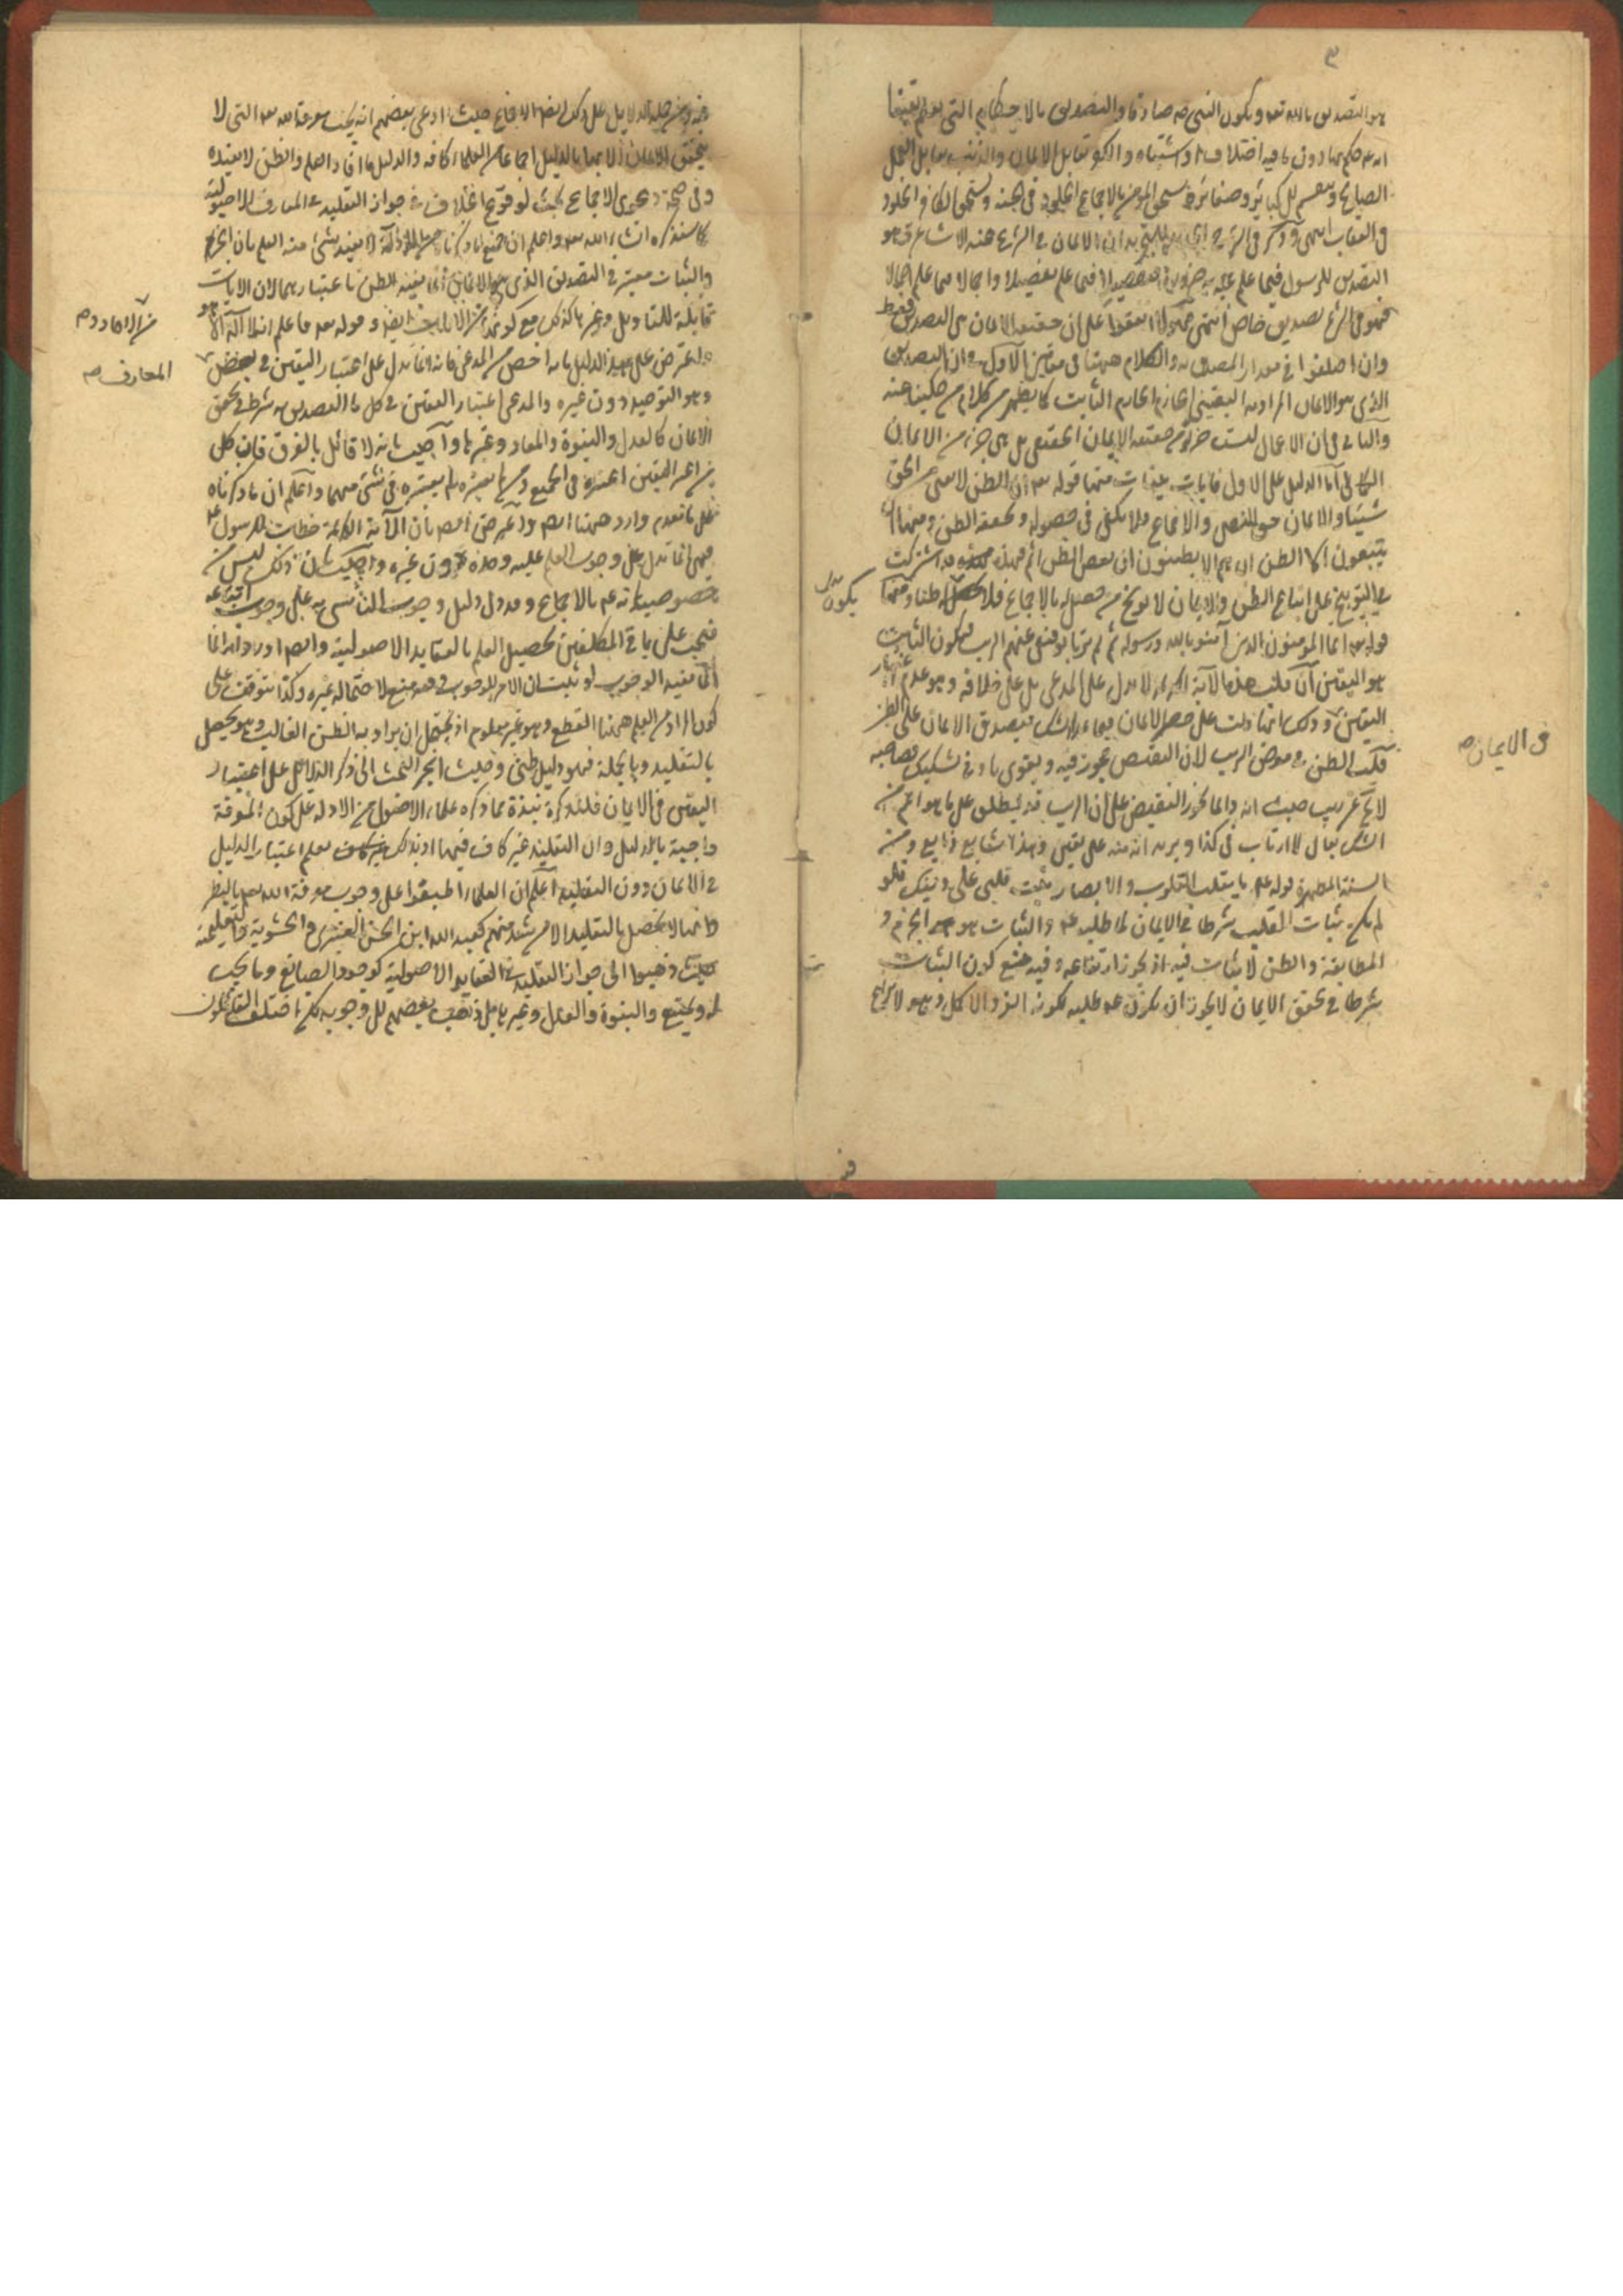 ٣
هو التصديق بالله تعه وبكون النبي صه صادقا والتصديق بالاحكام التي يعلم يقينا
انه عم حكم بها دون ما فيه اختلاف او اشتباه والكفر يقابل الايمان والذنب يقابل العمل
الصالح وينقسم الى كبائر وصغائر ويستحق المؤمن بالاجماع الخلود في الجنة ويستحق الكافر الخلود
في العقاب انتهى وذكر في الشرح ان الايمان في الشرع عند الاشاعرة هو
التصديق للرسول فيما علم مجيئه به ضرورة تفصيلا فيما علم تفصيلا واجمالا فيما علم اجمالا
فهو في الشرع تصديق خاص انتهى فهؤلاء اتفقوا على ان حقيقة الايمان هي التصديق فقط
وان اختلفوا في مقدار المصدق به والكلام ههنا في مقامين الاول في ان التصديق
الذي هو الايمان المراد به اليقيني الجازم الثابت كما يظهر من كلام من حكينا عنه
والثاني في ان الاعمال ليست جزءا من حقيقة الايمان الحقيقي بل هي جزء من الايمان
الكمالي اما الدليل على الاول فايات بينات منها قوله تعه ان الظن لا يغني من الحق
شيئا والايمان حق للنص والاجماع فلا يكفي في حصوله وتحققه الظن ومنها ان
يتبعون الا الظن ان هم الا يظنون ان بعض الظن اثم فهذه قد اشتركت
في التوبيخ على اتباع الظن والايمان لا يوبخ من حصل له بالاجماع فلا يكون ظنا ومنها
قوله تعه انما المؤمنون الذين آمنوا بالله ورسوله ثم لم يرتابوا فنفى عنهم الريب فيكون الثابت
هو اليقين ان قلت هذه الآية الكريمة لا تدل على المدعى بل على خلافه وهو عدم اعتبار
اليقين وذلك انها دلت على حصر الايمان فيما عدا الشك فيصدق الايمان على الظن
قلت الظن في معرض الريب لان النقيض مجوز فيه ويقوى بادنى تشكيك فصاحبه
لا يخ عن ريب حيث انه دائما يجوز النقيض على ان الريب قد يطلق على ما هو اعم من
الشك يقال لا ارتاب في كذا ويريد انه منه على يقين وهذا شايع ذايع ومن
السنة المطهرة قوله عم يا مقلب القلوب والابصار ثبت قلبي على دينك فلو
لم يكن ثبات القلب شرطا في الايمان لما طلبه عم والثبات هو الجزم و
المطابقة والظن لا ثبات فيه اذ يجوز ارتفاعه وفيه منع كون الثبات
شرطا في تحقق الايمان لا يجوز ان يكون عم طلبه لكونه الفرد الاكمل وهو لا نزاع
يكون
في الايمان صه
فيه ومن جملة الدلايل على ذلك ايضا الاجماع حيث ادعى بعضهم انه يجب معرفة الله تعه التي لا
يتحقق الايمان الا بها بالدليل اجماعا من العلماء كافة والدليل ما افاد العلم والظن لا يفيده
وفي صحة دعوى الاجماع بحث لوقوع الخلاف في جواز التقليد في المعارف الاصولية
كما سنذكره انشاء الله تعه واعلم ان جميع ما ذكرناه من الادلة لا يفيد شئ منه العلم بان الجزم
والثبات معتبر في التصديق الذي هو الايمان انما يفيد الظن باعتبارهما لان الايات
قابلة للتاويل وغيرها كذلك مع كونها من الاحاد ومن الايات ايضا قوله تعه فاعلم انه لا آله الا هو
واعترض على هذا الدليل بانه اخص من المدعى فانه انما يدل على اعتبار اليقين في بعض
وهو التوحيد دون غيره والمدعى اعتبار اليقين في كل ما التصديق به شرط في تحقق
الايمان كالعدل والنبوة والمعاد وغيرها واجيب بانه لا قائل بالفرق فان كل
من اعتبر اليقين اعتبره في الجميع ومن لم يعتبره لم يعتبره في شئ منهما واعلم ان ما ذكرناه
على ما تقدم وارد ههنا ايضا واعترض ايضا بان الآية الكريمة خطاب للرسول صه
فهي انما تدل على وجوب العلم عليه وحده دون غيره واجيب بان ذلك ليس من
خصوصياته عم بالاجماع وقد دل دليل وجوب التاسي به على وجوب اتباعه
فيجب على باقي المكلفين تحصيل العلم بالعقايد الاصولية وايضا اورد انه انما
يفيد الوجوب لو ثبت ان الامر للوجوب وفيه منع لاحتماله غيره وكذا يتوقف على
كون المراد من العلم ههنا القطع وهو غير معلوم اذ يحتمل ان يراد به الظن الغالب وهو يحصل
بالتقليد وبالجملة فهو دليل ظني وحيث انجر البحث الى ذكر الدلايل على اعتبار
اليقين في الايمان فلنذكر نبذة مما ذكره علماء الاصول من الادلة على كون المعرفة
واجبة بالدليل وان التقليد غير كاف فيها اذ بذلك يعلم اعتبار الدليل
في الايمان دون التقليد اعلم ان العلماء اطبقوا على وجوب معرفة الله تعه بالنظر
وانها لا تحصل بالتقليد الا من شذ منهم كعبد الله ابن الحسن العنبري والحشوية والتعليمية
حيث ذهبوا الى جواز التقليد في العقايد الاصولية كوجود الصانع وما يجب
له ويمتنع والنبوة والعدل وغيرها بل ذهب بعضهم الى وجوبه لكن اختلف القائلون
من الاحاد صه
المعارف صه